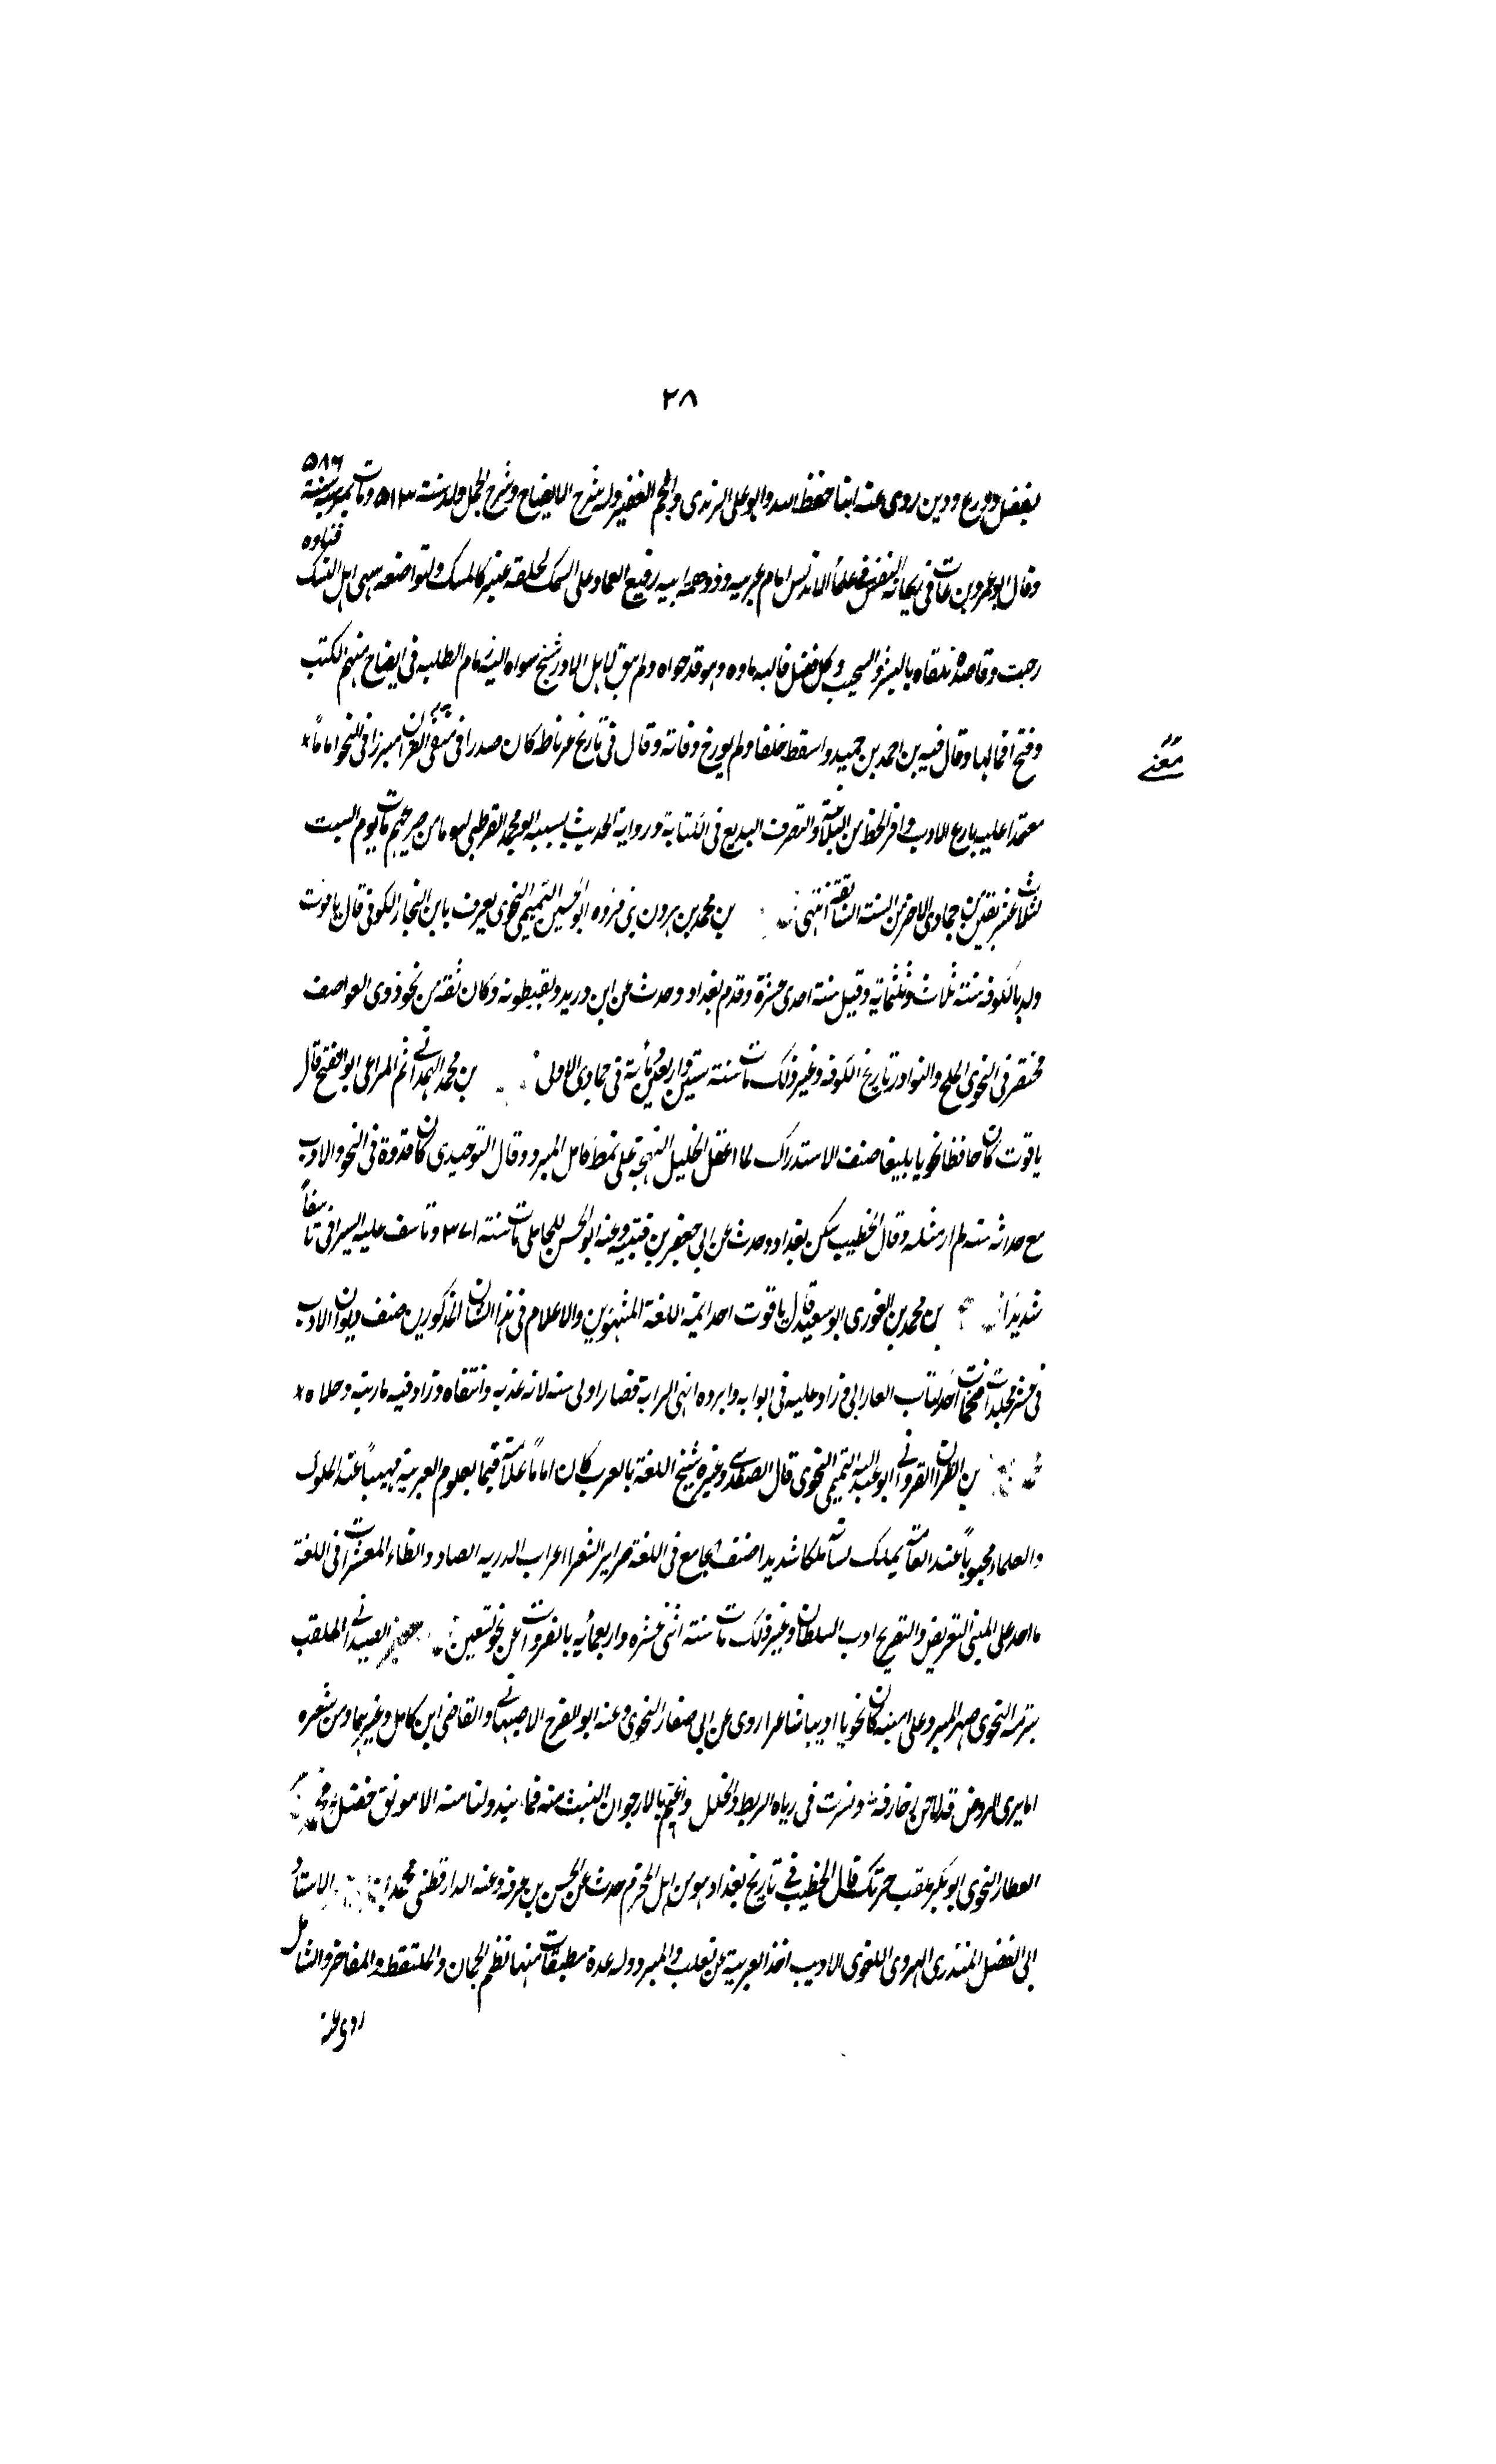 ٢٨
بفضل وورع ودين روى عنه ابنا حفظ الله وابو على الرندى والجم الغفير وله شرح الايضاح وشرح الجمل ولد سنة ٥١٣ ومات بمرسية سنة ٥٨٦
وقال ابو عمرو بن عات فى ريحانة النفس فى علماء الاندلس امام عربية وذو همة ابيه رفيع العماد على السمك لحلقه عنبر كالمسك ولتواضعه سمى اهل النسك فتياوه
رحبت وقاصدوه تلقاه بالبشر والسحب وكل فضل فالبه ماوه وهو قد حواه ولم يبق لاهل الماور شيخ سواه اليه ام الطلبه فى ايضاح مبهم الكتب
وفتح اقفالها وقال فيه بن احمد بن حميد واسقط خلفا ولم يورخ وفاته وقال فى تاريخ غرناطه كان صدرا فى متقنى القران مبرزا فى النحو اماماً
معنے
معتمدا عليه بارع الادب وافر الحظ من البلاغة والتصرف البديع فى الكتابة ورواية الحديث بسببه ابو محمد القرطبى مات يوم السبت
لثلاث عشر بقين من جمادى الاخر من السنة السابقة انتهى بن محمد بن هرون بن فزوه ابو الحسين التميمى النحوى يعرف بابن النجار الكوفى قال ياقوت
ولد بالكوفه سنة ثلاث وثلثماية وقيل سنة احدى عشرة وقدم بغداد وحدث عن ابن دريد ونفطويه وكان ثقة من نحو ذوى العواصف
مختصر فى النحو الملح والنوادر تاريخ الكوفه وغير ذلك مات سنة ستين واربعماية فى جمادى الاولى بن محمد الهمدانے ثم المراعى ابو الفتح قال
ياقوت كان حافظا نحويا بليغا صنف الاستدراك لما اغفل الخليل البهجة على نمط كامل المبرد وقال التوحيدى كان قدوة فى النحو والادب
مع حداثه سنه لم ار مثله وقال الخطيب سكن بغداد وحدث عن ابى جعفر بن قتيبه وعنه ابو الحسن المحاملى مات سنة ٣٧١ وتاسف عليه السيرافى تاسفاً
شديدا بن محمد بن الغورى ابو سعيد قال ياقوت احد ايمة اللغة المشهورين والاعلام فى هذا الشان المذكورين صنف ديوان الادب
فى عشر مجلدات ضخمات اخذ كتاب الفارابى وزاد عليه فى ابوابه وابرده ابهى اترابه فصار اولى منه لانه هذبه وانتقاه وزاد فيه ما زينه وحلاه
بن القزاز القيروانے ابو عبد الله التميمى النحوى قال الصفدى وغيره شيخ اللغة بالعرب كان اماماً علامة قيما بعلوم العربية مهيباً عند الملوك
والعلماء محبوباً عند العامة يملك لسانه ملكا شديدا صنف الجامع فى اللغة ضراير الشعر اعراب الدريديه الضاد والظاء المعشرات فى اللغة
ما اخذ على المتنبى التعريض والتصريح ادب السلطان وغير ذلك مات سنة اثنى عشره واربعمايه بالقيروان عن نحو تسعين جعفر الصيدلانے الملقب
برمة النحوى صهر المبرد على ابنته كان نحويا اديبا شاعرا روى عن ابى هفان النحوى وعنه ابو الفرج الاصبهانے والقاضى ابن كامل وغيرهما ومن شعره
اما يرى الروض قد لاحت زخارفه ونشرت فى رباه الريط والحلل واعتم بالارجوان النبت منه فما يبدو لنا منه الا مونق خضل محمد
العطار النحوى ابو بكر يلقب خرتك قال الخطيب فے تاريخ بغداد هو من اهل المخرم حدث عن الحسن بن عرفه وعنه الدارقطنى محمد الاستاذ
ابى الفضل المنذرى الهروى اللغوى الاديب اخذ العربية عن ثعلب والمبرد وله عدة مصنفات منها نظم الجمان والملتقط والمفاخر والشامل
روى عنه